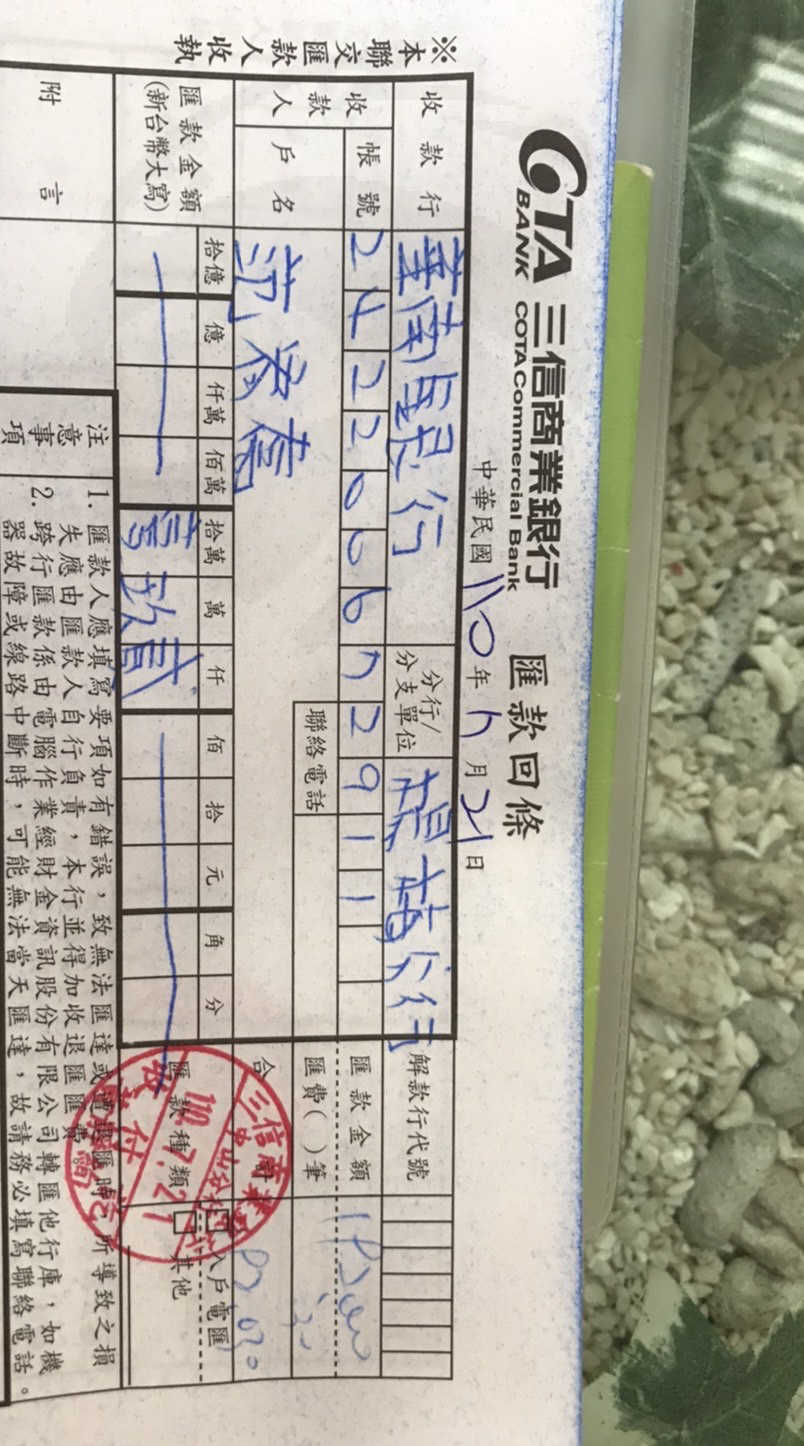 COTA 三信商業銀行 匯款回條
BANK COTA Commercial Bank
中華民國 110 年 7 月 21 日
※本聯交匯款人收執
收款行 華南銀行 分行/分支單位 分行 解款行代號
收款人 帳號 242200672911 匯款金額
戶名 聯絡電話 匯費( )筆
合
匯款金額
(新台幣大寫)
拾億 億 仟萬 佰萬 拾萬 萬 仟 佰 拾 元 角 分
匯款種類 入戶電匯
其他
三信商業
110.7.21
附言
注意事項
1. 匯款人應填寫要項如有錯誤,致無法匯達或 匯時 所導致之損
失應由匯款人自行負責,本行並得加收退匯匯費
2. 跨行匯款係由電腦作業經財金資訊股份有限公司轉匯他行庫,如機
器故障或線路中斷時,可能無法當天匯達,故請務必填寫聯絡電話。